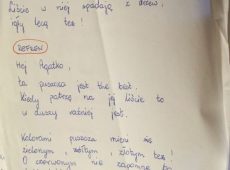 Liście w niej spadają z drzew,
igły lecą też!
REFREN
Hej Agatko,
ta puszcza jest the best.
Kiedy patrzę na jej liście to
w duszy radziej jest.
Kolorami puszcza mieni się
zielonym, żółtym, złotym też!
O czerwonym nie zapomnę